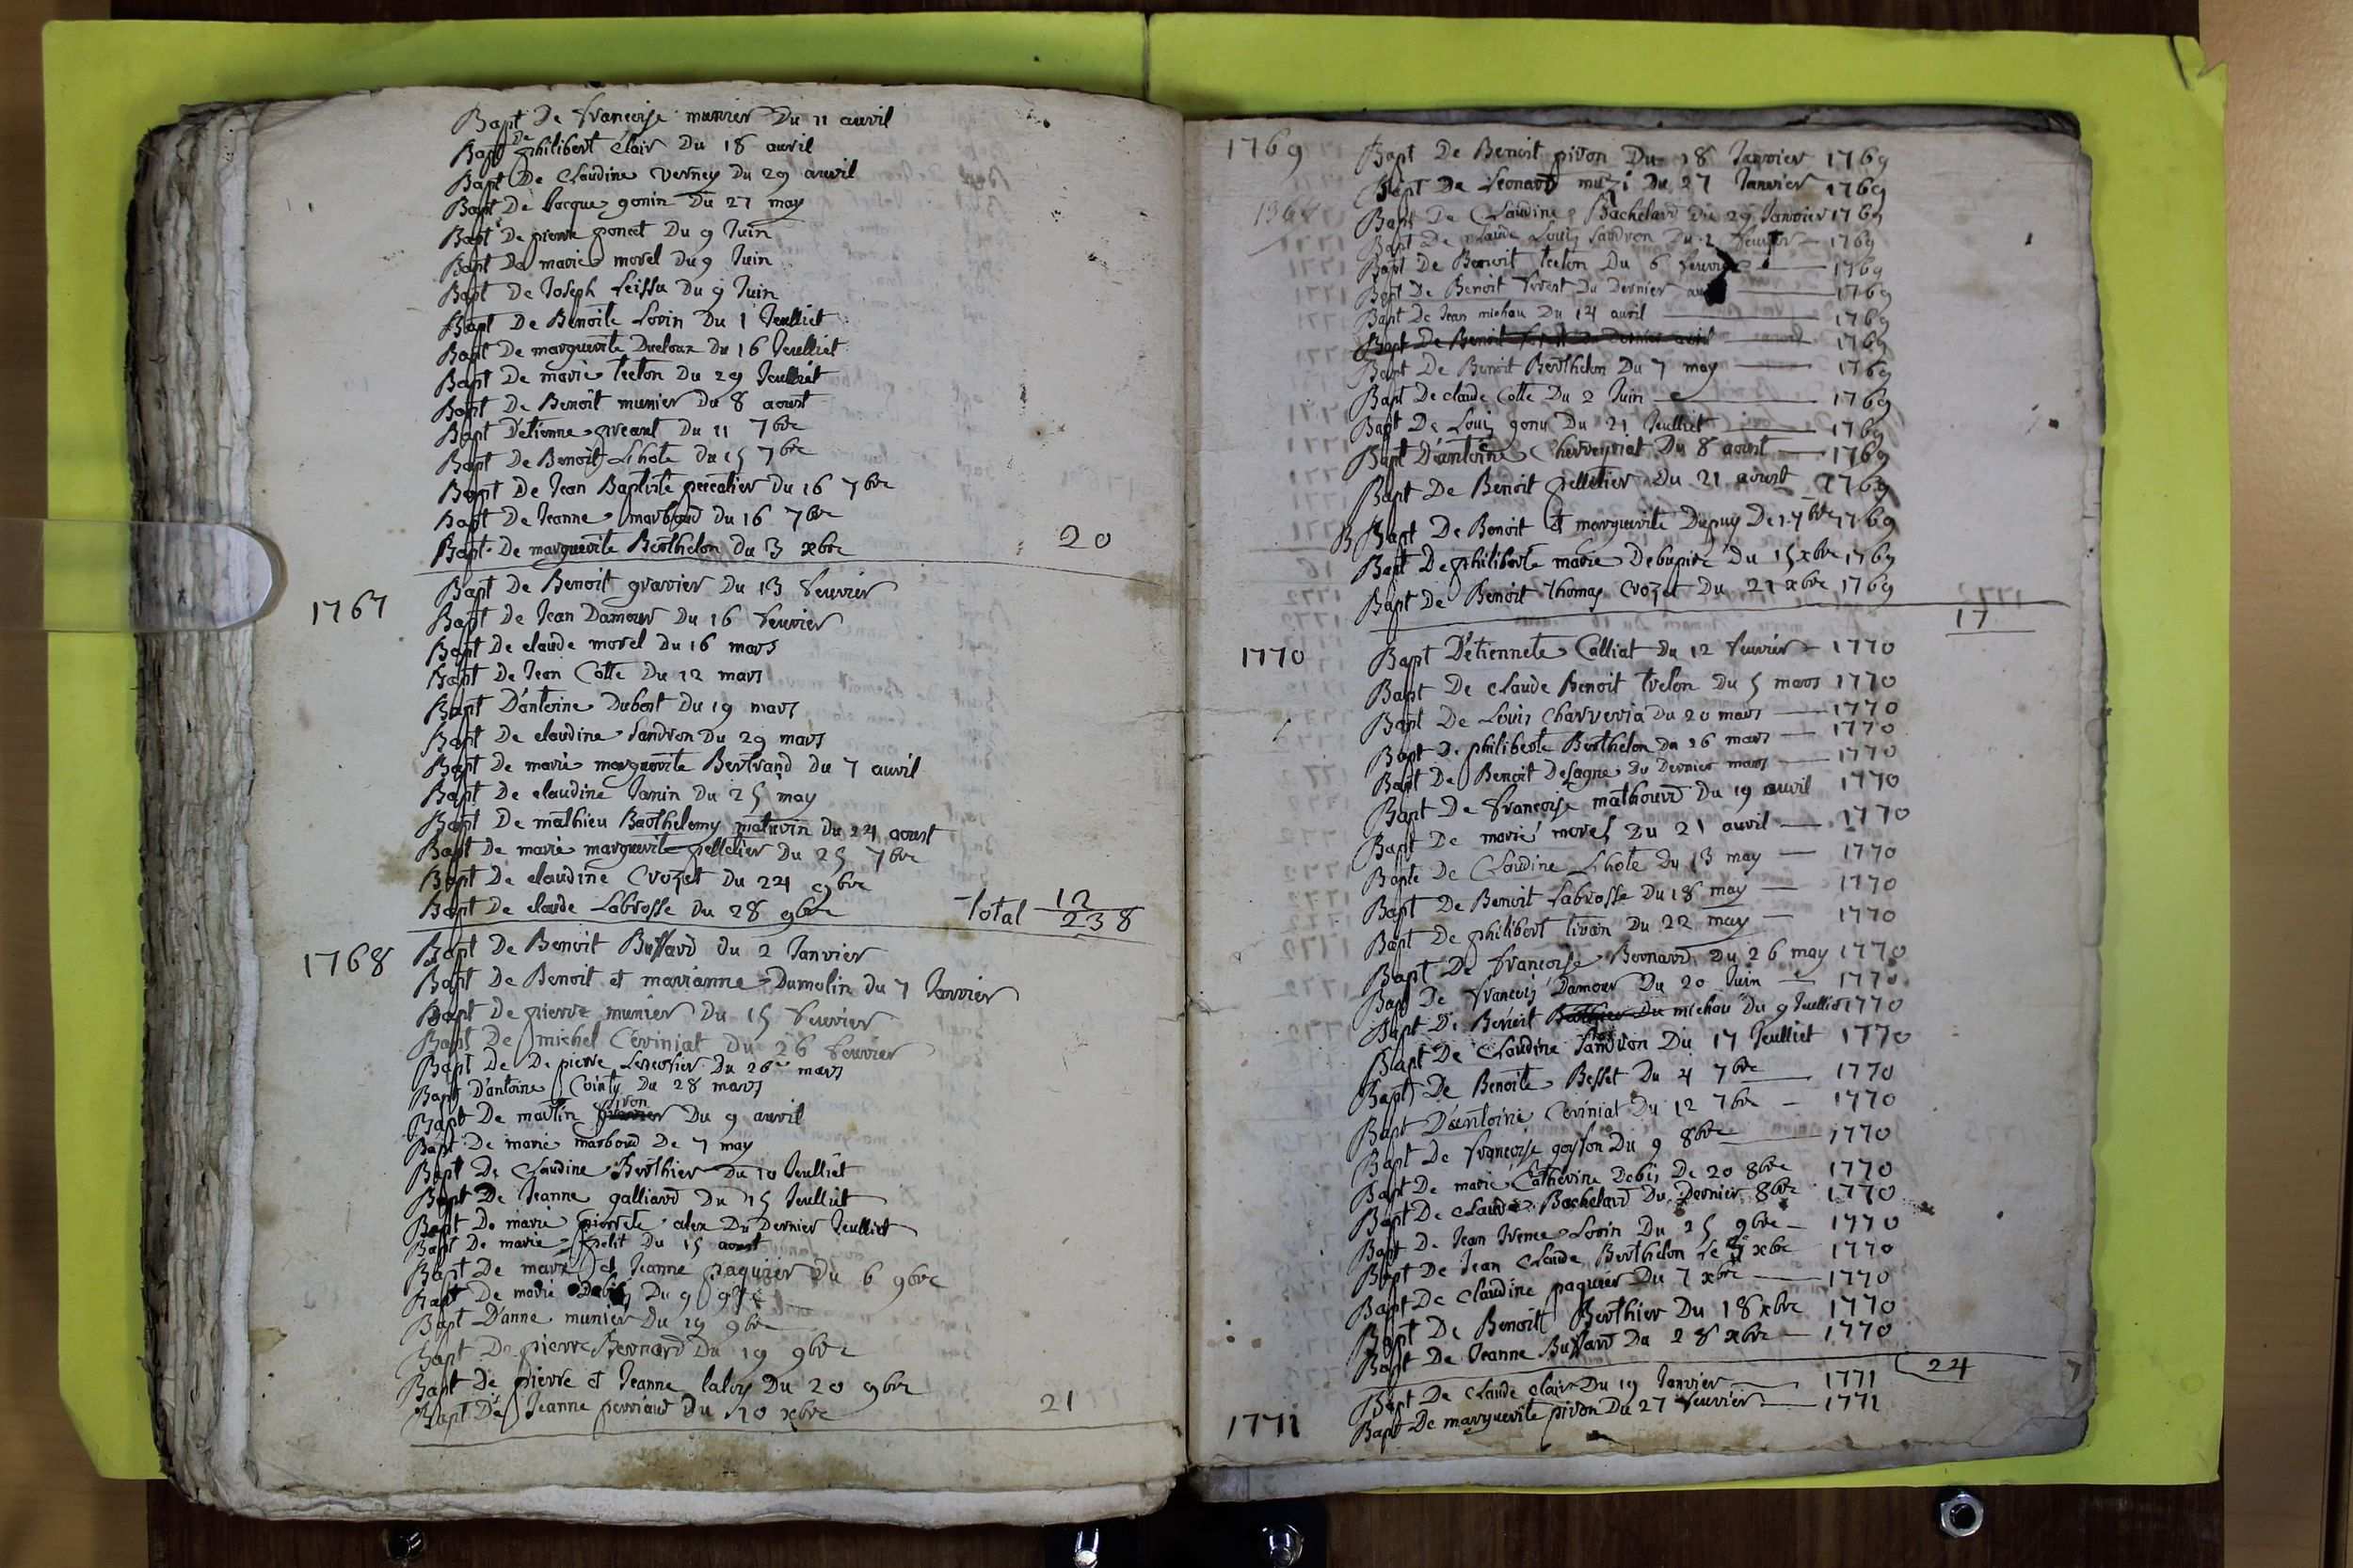 Bapt De francoise munier Du 11 auril
Bapt De philibert clair Du 18 auril
Bapt De Claudine Verney Du 29 auril
Bapt De Jacque gonin Du 27 may
Bapt De pierre poncet Du 9 Juin
Bapt De marie morel du 9 Juin
Bapt De Joseph Leissu du 9 Juin
Bapt De Benoite Lorin Du 1 Jeulliet
Bapt De marguerite Ducloux du 16 Jeulliet
Bapt De marie teton Du 29 Jeulliet
Bapt De Benoit munier Du 8 aoust
Bapt D'etienne Du 11 7bre
Bapt De Benoit Lhote du 15 7bre
Bapt De Jean Baptiste Du 16 7bre
Bapt De Jeanne marboud du 16 7bre
Bapt De marguerite Berthelon du 3 xbre 20
1767 Bapt De Benoit gravier Du 13 feuvrier
Bapt De Jean Damour Du 16 feuvrier
Bapt De claude morel du 16 mars
Bapt De Jean Cotte Du 12 mars
Bapt D'antoine Dubost Du 19 mars
Bapt De claudine Sandron Du 29 mars
Bapt De marie marguerite Bertrand du 7 auril
Bapt De claudine Janin Du 25 may
Bapt De mathieu Barthelemy maturin du 24 aoust
Bapt De marie marguerite pelletier Du 25 7bre
Bapt De claudine Crozet Du 24 9bre
Bapt De claude Labrosse du 28 9bre 12
Total 238
1768 Bapt De Benoit Bussard du 2 Janvier
Bapt De Benoit et marianne Dumolin du 7 Janvier
Bapt De pierre munier Du 15 feuvrier
Bapt De michel Ceviniat Du 26 feuvrier
Bapt De De pierre Du 26 mars
Bapt D'antoine Cointy Du 28 mars
Bapt De martin pivon Du 9 auril
Bapt De marie marboud De 7 may
Bapt De Claudine Berthier Du 10 Jeulliet
Bapt De Jeanne galliard Du 15 Jeulliet
Bapt De marie pierrete alex Du Dernier Jeulliet
Bapt De marie petit Du 15 aoust
Bapt De marie et Jeanne paquier Du 6 9bre
Bapt De marie Debis Du 9 9bre
Bapt D'anne munier Du 19 9bre
Bapt De pierre Bernard Du 19 9bre
Bapt De pierre et Jeanne laloy Du 20 9bre
Bapt De Jeanne perriaud du 10 xbre 21
1769 Bapt De Benoit pivon Du 18 Janvier 1769
Bapt De Leonard Du 27 Janvier 1769
Bapt De Claudine Bachelard Du 29 Janvier 1769
Bapt De claude Louis Sandron Du 2 feuvrier 1769
Bapt De Benoit teton Du 6 feuvrier 1769
Bapt De Benoit Du Dernier 1769
Bapt De Jean michau Du 14 auril 1769
Bapt De Benoit Du Dernier auril 1769
Bapt De Benoit Berthelon Du 7 may 1769
Bapt De claude Cotte Du 2 Juin 1769
Bapt De Louis gonu Du 21 Jeulliet 1769
Bapt D'antoine Cherveyriat Du 8 aoust 1769
Bapt De Benoit pelletier Du 21 aoust 1769
B Bapt De Benoit et marguerite Dupuy De 7bre 1769
Bapt De philiberte marie Debupire du 15 xbre 1769
Bapt De Benoit thomas Crozet Du 21 xbre 1769
17
1770 Bapt D'etiennete Calliat Du 12 feuvrier 1770
Bapt De claude Benoit trelon Du 5 mars 1770
Bapt De Louis Charveria Du 20 mars 1770
Bapt De philiberte Berthelon du 26 mars 1770
Bapt De Benoit Desagne du Dernier mars 1770
Bapt De francoise mathourd Du 19 auril 1770
Bapt De marie morel Du 21 auril 1770
Bapte De Claudine Lhote Du 13 may 1770
Bapt De Benoit Labrosse Du 18 may 1770
Bapt De philibert tivan Du 22 may 1770
Bapt De francoise Bernard Du 26 may 1770
Bapt De francois Damour Du 20 Juin 1770
Bapt De Benoit michau Du 9 Jeulliet 1770
Bapt De Claudine Sandron Du 17 Jeulliet 1770
Bapt De Benoite Besset Du 4 7bre 1770
Bapt D'antoine Ceviniat Du 12 7bre 1770
Bapt De francoise goyson Du 9 8bre 1770
Bapt De marie Catherine Debis De 20 8bre 1770
Bapt De claude Bachelard Du Dernier 8bre 1770
Bapt De Jean Lorin Du 25 9bre 1770
Bapt De Jean Claude Berthelon Le xbre 1770
Bapt De claudine paquier Du 7 xbre 1770
Bapt De Benoit Berthier Du 18 xbre 1770
Bapt De Jeanne Bussard Du 28 xbre 1770
24
Bapt De claude clair Du 19 Janvier 1771
1771 Bapt De marguerite pivon Du 27 feuvrier 1771